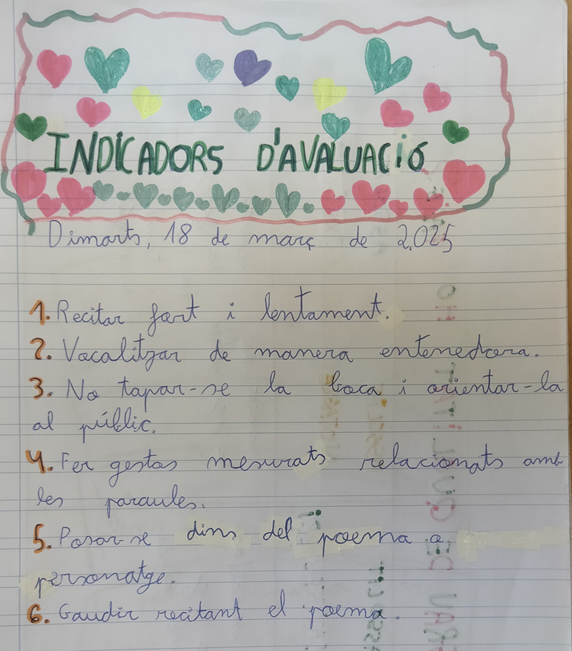 INDICADORS D'AVALUACIÓ
Dimarts, 18 de març de 2025
1. Recitar fort i lentament.
2. Vocalitzar de manera entenedora.
3. No tapar-se la boca i orientar-la
al públic.
4. Fer gestos mesurats relacionats amb
les paraules.
5. Posar-se dins del poema o
personatge.
6. Gaudir recitant el poema.